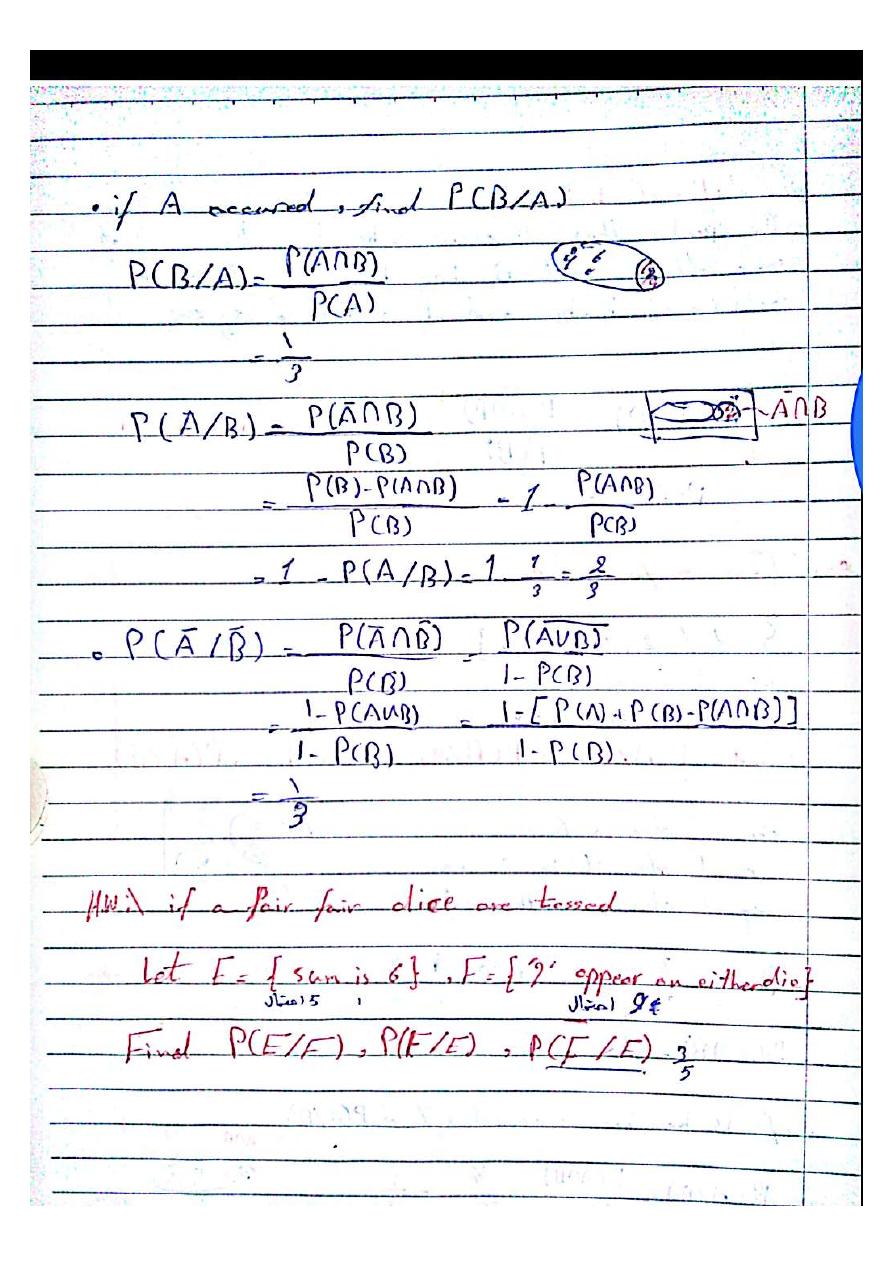 • if A accured, find P(B/A)
P(B/A) = P(A∩B) / P(A)
= 1/3
P(Ā/B) = P(Ā∩B) / P(B)
Ā∩B
= P(B)-P(A∩B) / P(B) = 1 - P(A∩B) / P(B)
= 1 - P(A/B) = 1 - 1/3 = 2/3
• P(Ā/B̄) = P(Ā∩B̄) / P(B̄) = P(A̅U̅B̅) / 1-P(B)
= 1-P(AUB) / 1-P(B) = 1-[P(A)+P(B)-P(A∩B)] / 1-P(B).
= 1/3
H.W:\ if a Pair fair dice are tossed
Let E={sum is 6}, F={'2' appear on either die}
5 احتمال
احتمال
Find P(E/F), P(F/E), P(F̄/E) 3/5